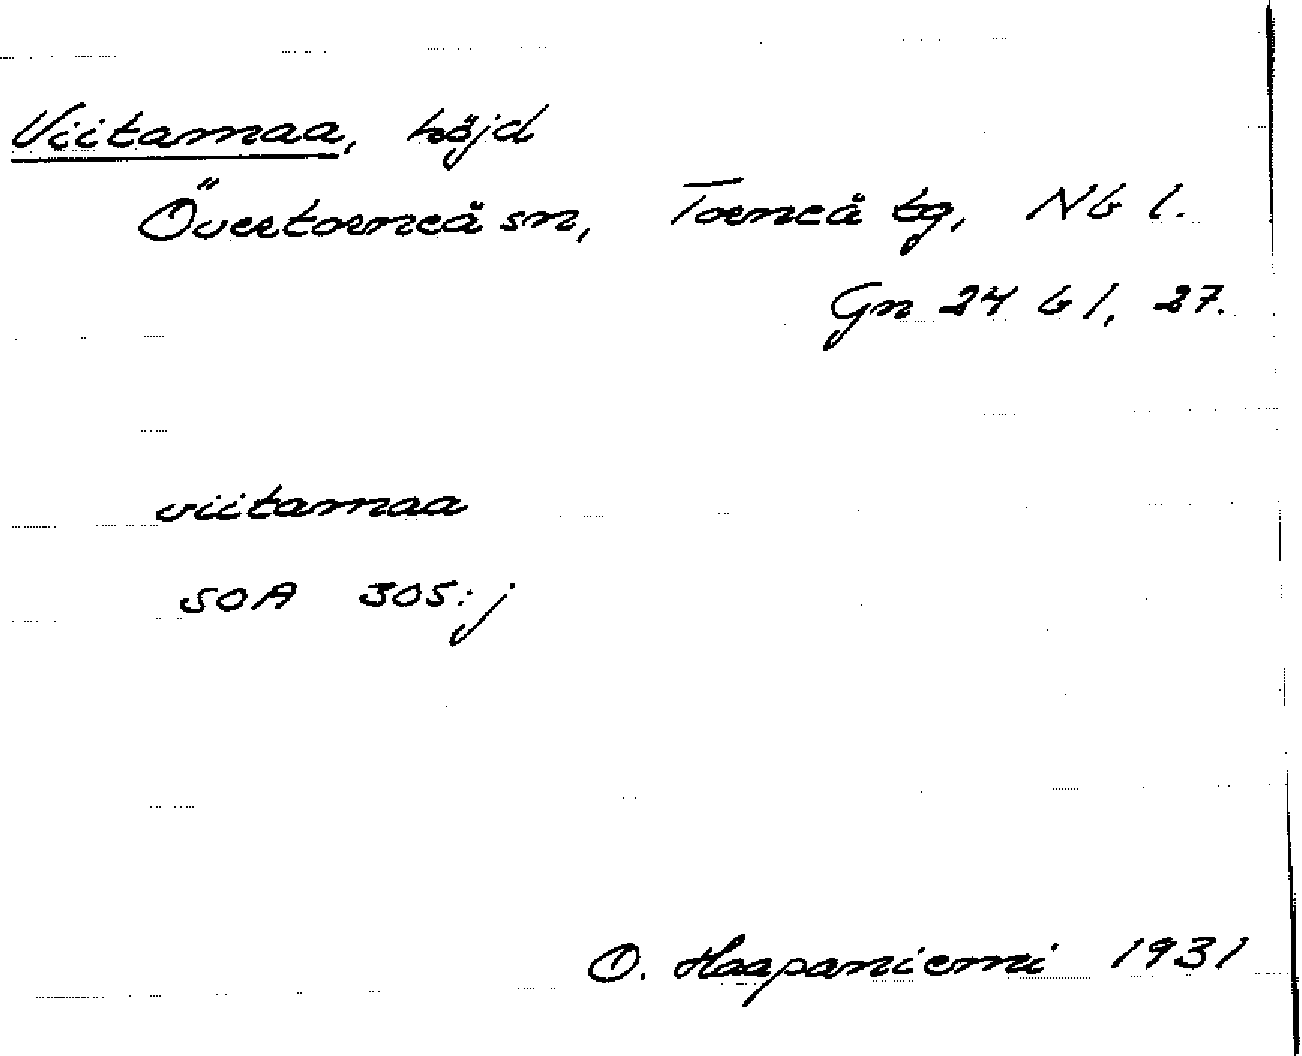 Viitamaa, höjd
Övertorneå sn, Torneå tg, Nb l.
Gn 24 b 1, 27.
viitamaa
SOA 305:j
O. Haapaniemi 1931